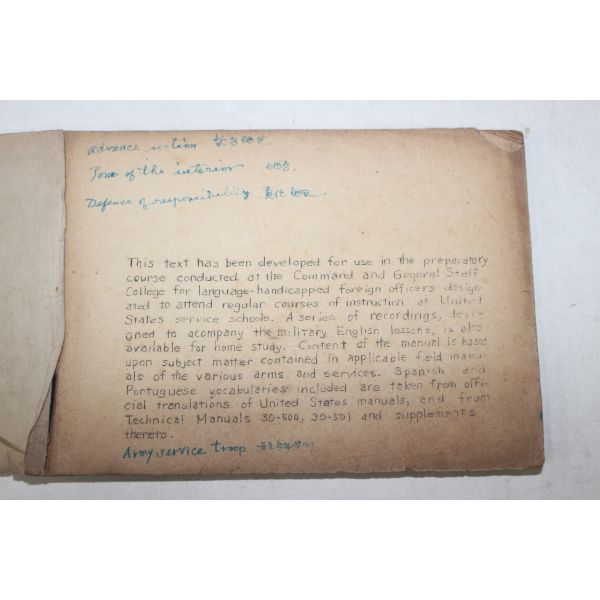 advance section
Zone of the interior
Defence of responsibility 責任地区
This text has been developed for use in the preparatory
course conducted at the Command and General Staff
College for language-handicapped foreign officers design-
ated to attend regular courses of instruction at United
States service schools. A series of recordings, desi-
gned to acompany the military English lessons, is also
available for home study. Content of the manual is based
upon subject matter contained in applicable field manu-
als of the various arms and services. Spanish and
Portuguese vocabularies included are taken from offi-
cial translations of United States manuals, and from
Technical Manuals 30-500, 30-501 and supplements
thereto.
Army service troop